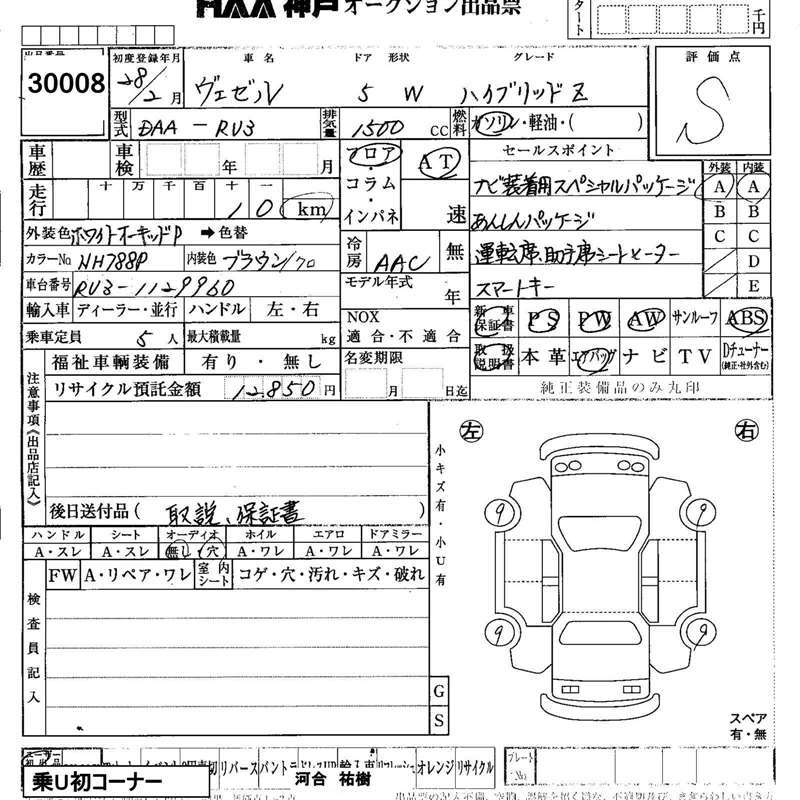 HAA 神戸 オークション出品票
千円
30008
初度登録年月 車名 ドア 形状 グレード 評価点
28/2月 ヴェゼル 5 W ハイブリッドZ S
型式 DAA-RU3 排気量 1500 cc 燃料 ガソリン・軽油・( )
車歴 車検 年 月 フロア・コラム・インパネ AT 速
セールスポイント
外装 内装
走行 十万千百十一 10 km
ナビ装着用スペシャルパッケージ
A A
B B
C C
D
E
外装色 ホワイトオーキッドP ➡ 色替
あんしんパッケージ
カラーNo NH788P 内装色 ブラウン/クロ 冷房 AAC 無
運転席、助手席シートヒーター
車台番号 RU3-1129960 モデル年式 年
スマートキー
輸入車 ディーラー・並行 ハンドル 左・右 NOX 適合・不適合
新車保証書 PS PW AW サンルーフ ABS
乗車定員 5人 最大積載量 kg
取扱説明書 本革 エアバッグ ナビ TV Dチューナー (純正・社外含む)
福祉車輌装備 有り・無し 名変期限 月 日迄
純正装備品のみ丸印
注意事項《出品店記入》
リサイクル預託金額 12,850 円
後日送付品( 取説、保証書 )
ハンドル シート オーディオ ホイル エアロ ドアミラー
A・スレ A・スレ 無し・穴 A・ワレ A・ワレ A・ワレ
FW A・リペア・ワレ 室内シート コゲ・穴・汚れ・キズ・破れ
検査員記入
小キズ有・小U有
左 右
9 9
9 9
G
S
スペア
有・無
リバース パントラ 輸入車 オレンジ リサイクル
プレートNo
乗U初コーナー
河合 祐樹